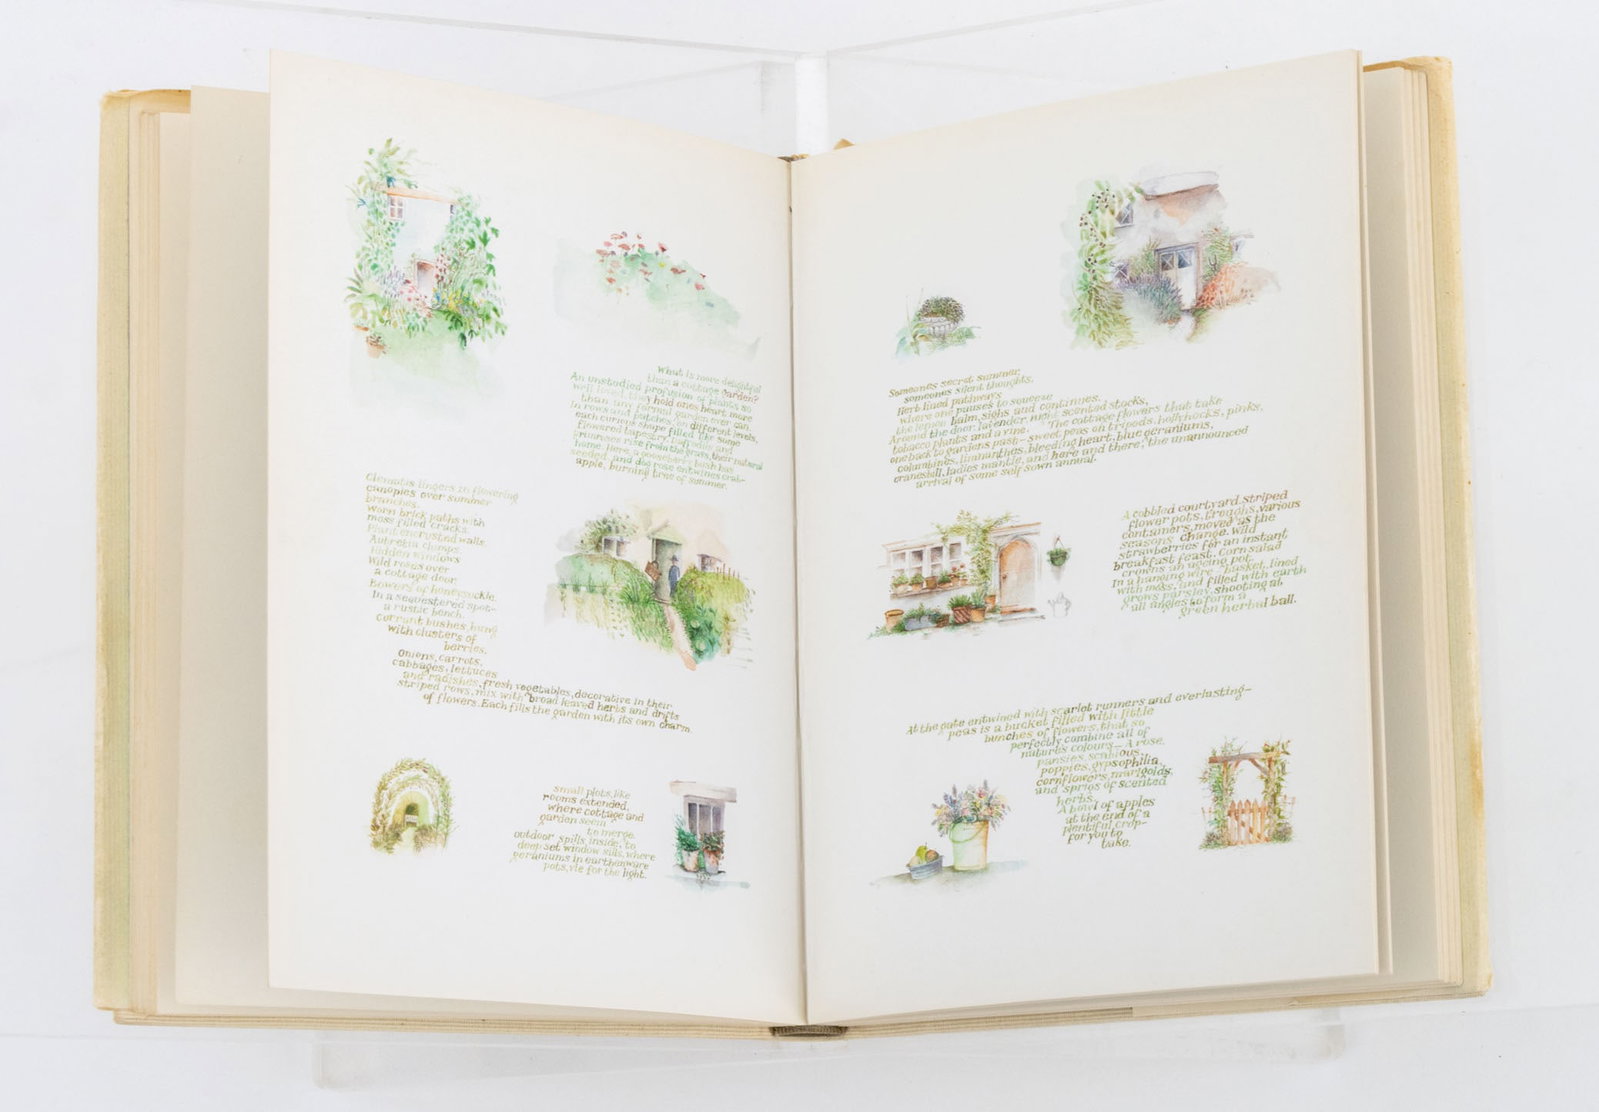 What is more delightful
than a cottage garden?
An unstudied profusion of plants so
well loved, they hold ones heart more
than any formal garden ever can.
In rows and patches, on different levels,
each curious shape filled like some
flowered tapestry of fruit and
primroses rise from the grass, their natural
home. Here, a gooseberry bush has
seeded, and dog rose entwines crab-
apple, burning brae of summer.
Clematis lingers in flowering
canopies over summer
branches.
Worn brick paths with
moss filled cracks.
Plant encrusted walls.
Aubretia clumps.
Hidden windows
Wild roses over
a cottage door.
Bowers of honeysuckle.
In a sequestered spot-
a rustic bench.
Currant bushes hung
with clusters of
berries.
Onions, carrots,
cabbages, lettuces
and radishes, fresh vegetables, decorative in their
striped rows, mix with broad leaved herbs and drifts
of flowers. Each fills the garden with its own charm.
small plots, like
rooms extended,
where cottage and
garden seem
to merge.
outdoor spills inside, to
deep set window sills, where
geraniums in earthenware
pots, vie for the light.
Someones secret summer,
someones silent thoughts.
Herb lined pathways
where one pauses to squeeze
the lemon balm, sighs and continues.
Around the door, lavender, night scented stocks,
tobacco plants and a vine. The cottage flowers that take
one back to gardens past - sweet peas on tripods, hollyhocks, pinks,
columbines, limnanthes, bleeding heart, blue geraniums,
cranesbill, ladies mantle, and here and there, the unannounced
arrival of some self sown annual.
A cobbled courtyard. Striped
flower pots, troughs, various
containers, moved as the
seasons change. Wild
strawberries for an instant
breakfast feast. Corn salad
crowns an ageing pot.
In a hanging wire basket, lined
with moss, and filled with earth
grows parsley, shooting at
all angles to form a
green herbal ball.
At the gate entwined with scarlet runners and everlasting-
peas is a bucket filled with little
bunches of flowers, that so
perfectly combine all of
natures colours - A rose,
pansies, scabious,
poppies, gypsophilia,
cornflowers, marigolds,
and sprigs of scented
herbs.
A bowl of apples
at the end of a
plentiful crop-
for you to
take.